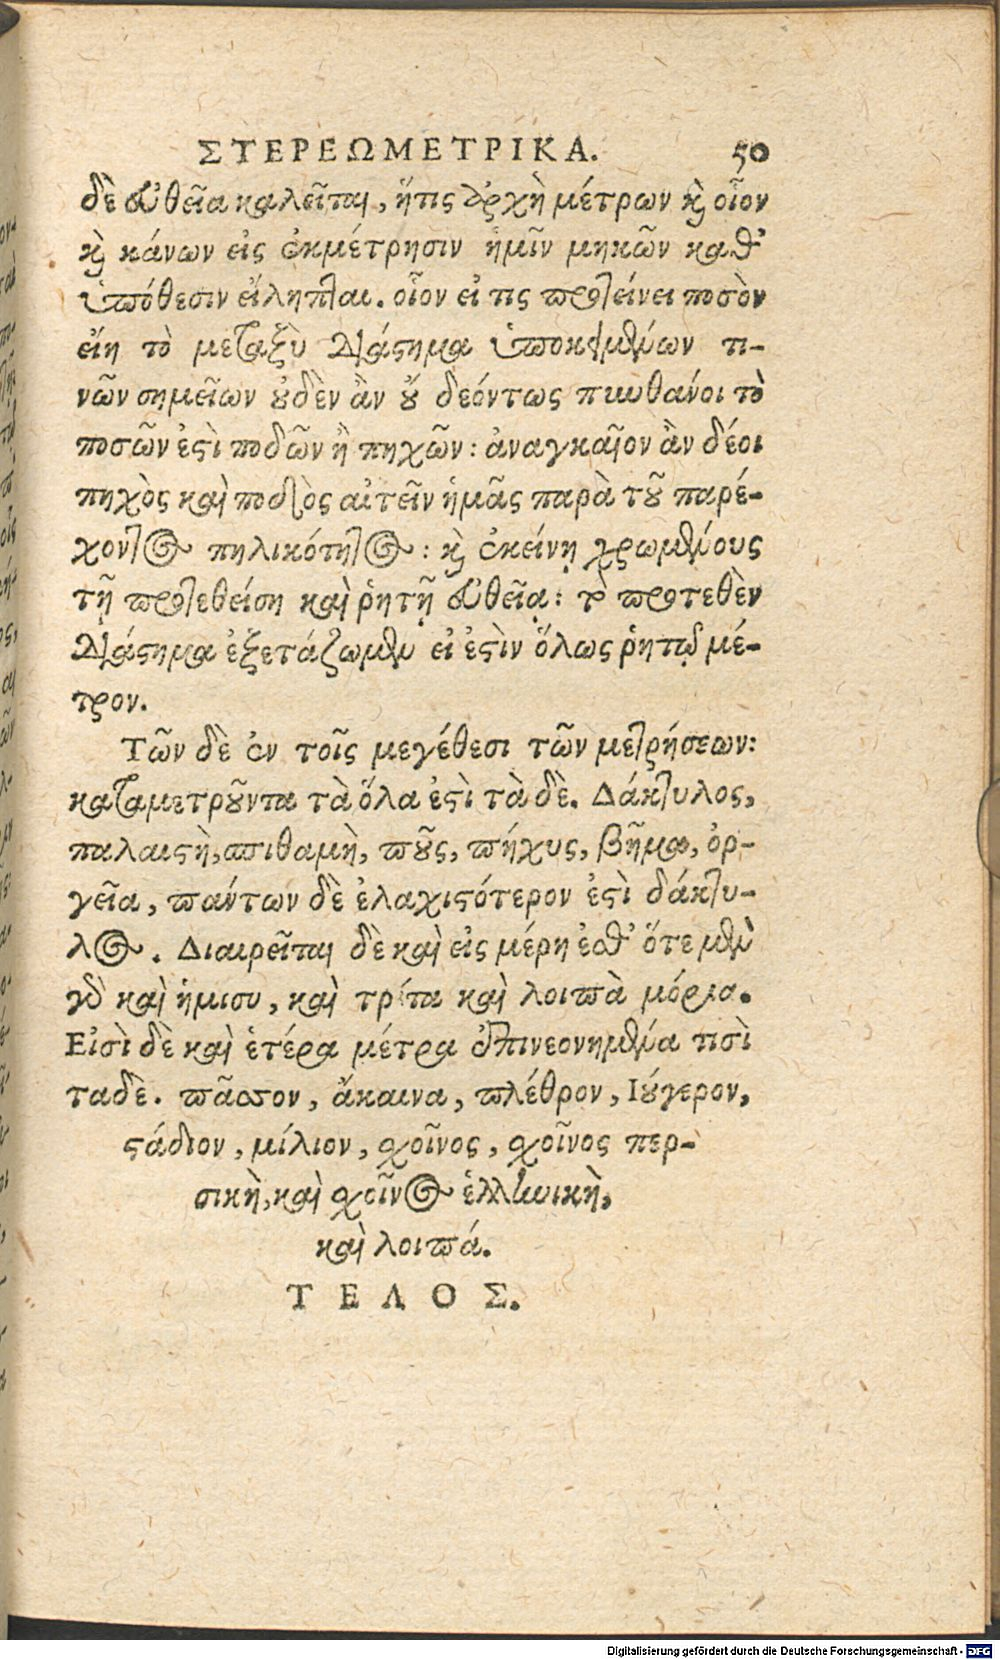 ΣΤΕΡΕΩΜΕΤΡΙΚΑ. 50
δὲ εὐθεῖα καλεῖται, ἥτις ἀρχὴ μέτρων καὶ οἷον
καὶ κάνων εἰς ἐκμέτρησιν ἡμῖν μηκῶν καθ’
ὑπόθεσιν εἴληπται. οἷον εἰ τις προτείνει ποσὸν
εἴη τὸ μεταξὺ διάστημα ὑποκειμένων τι-
νῶν σημεῖων οὐδὲν ἂν οὐ δεόντως πυνθανοι τὸ
ποσῶν ἐστὶ ποδῶν ἢ πηχῶν: ἀναγκαῖον ἂν δέοι
πηχὸς καὶ ποδὸς αἰτεῖν ἡμᾶς παρὰ τοῦ παρέ-
χοντος πηλικότητος: καὶ ἐκείνῃ χρωμένους
τῇ προτεθείσῃ καὶ ῥητῇ εὐθεῖᾳ: τὸ προτεθὲν
διάστημα ἐξετάζωμεν εἰ ἐστὶν ὅλως ῥητῷ μέ-
τρον.
Τῶν δὲ ἐν τοῖς μεγέθεσι τῶν μετρήσεων:
καταμετροῦντα τὰ ὅλα ἐστὶ τὰ δὲ. Δάκτυλος,
παλαιστὴ, σπιθαμὴ, ποῦς, πήχυς, βῆμα, ὀρ-
γεῖα, πάντων δὲ ἐλαχιστότερον ἐστὶ δάκτυ-
λος. Διαιρεῖται δὲ καὶ εἰς μέρη ἐσθ’ ὅτε μὲν
γὰρ καὶ ἡμισυ, καὶ τρίτα καὶ λοιπὰ μόρια.
Εἰσὶ δὲ καὶ ἑτέρα μέτρα ἐπινεονημένα τισὶ
ταδὲ. πᾶσσον, ἄκαινα, πλέθρον, Ιούγερον,
στάδιον, μίλιον, σχοῖνος, σχοῖνος περ-
σικὴ, καὶ σχοῖνος ἑλληνικὴ,
καὶ λοιπά.
ΤΕΛΟΣ.
Digitalisierung gefördert durch die Deutsche Forschungsgemeinschaft - DFG